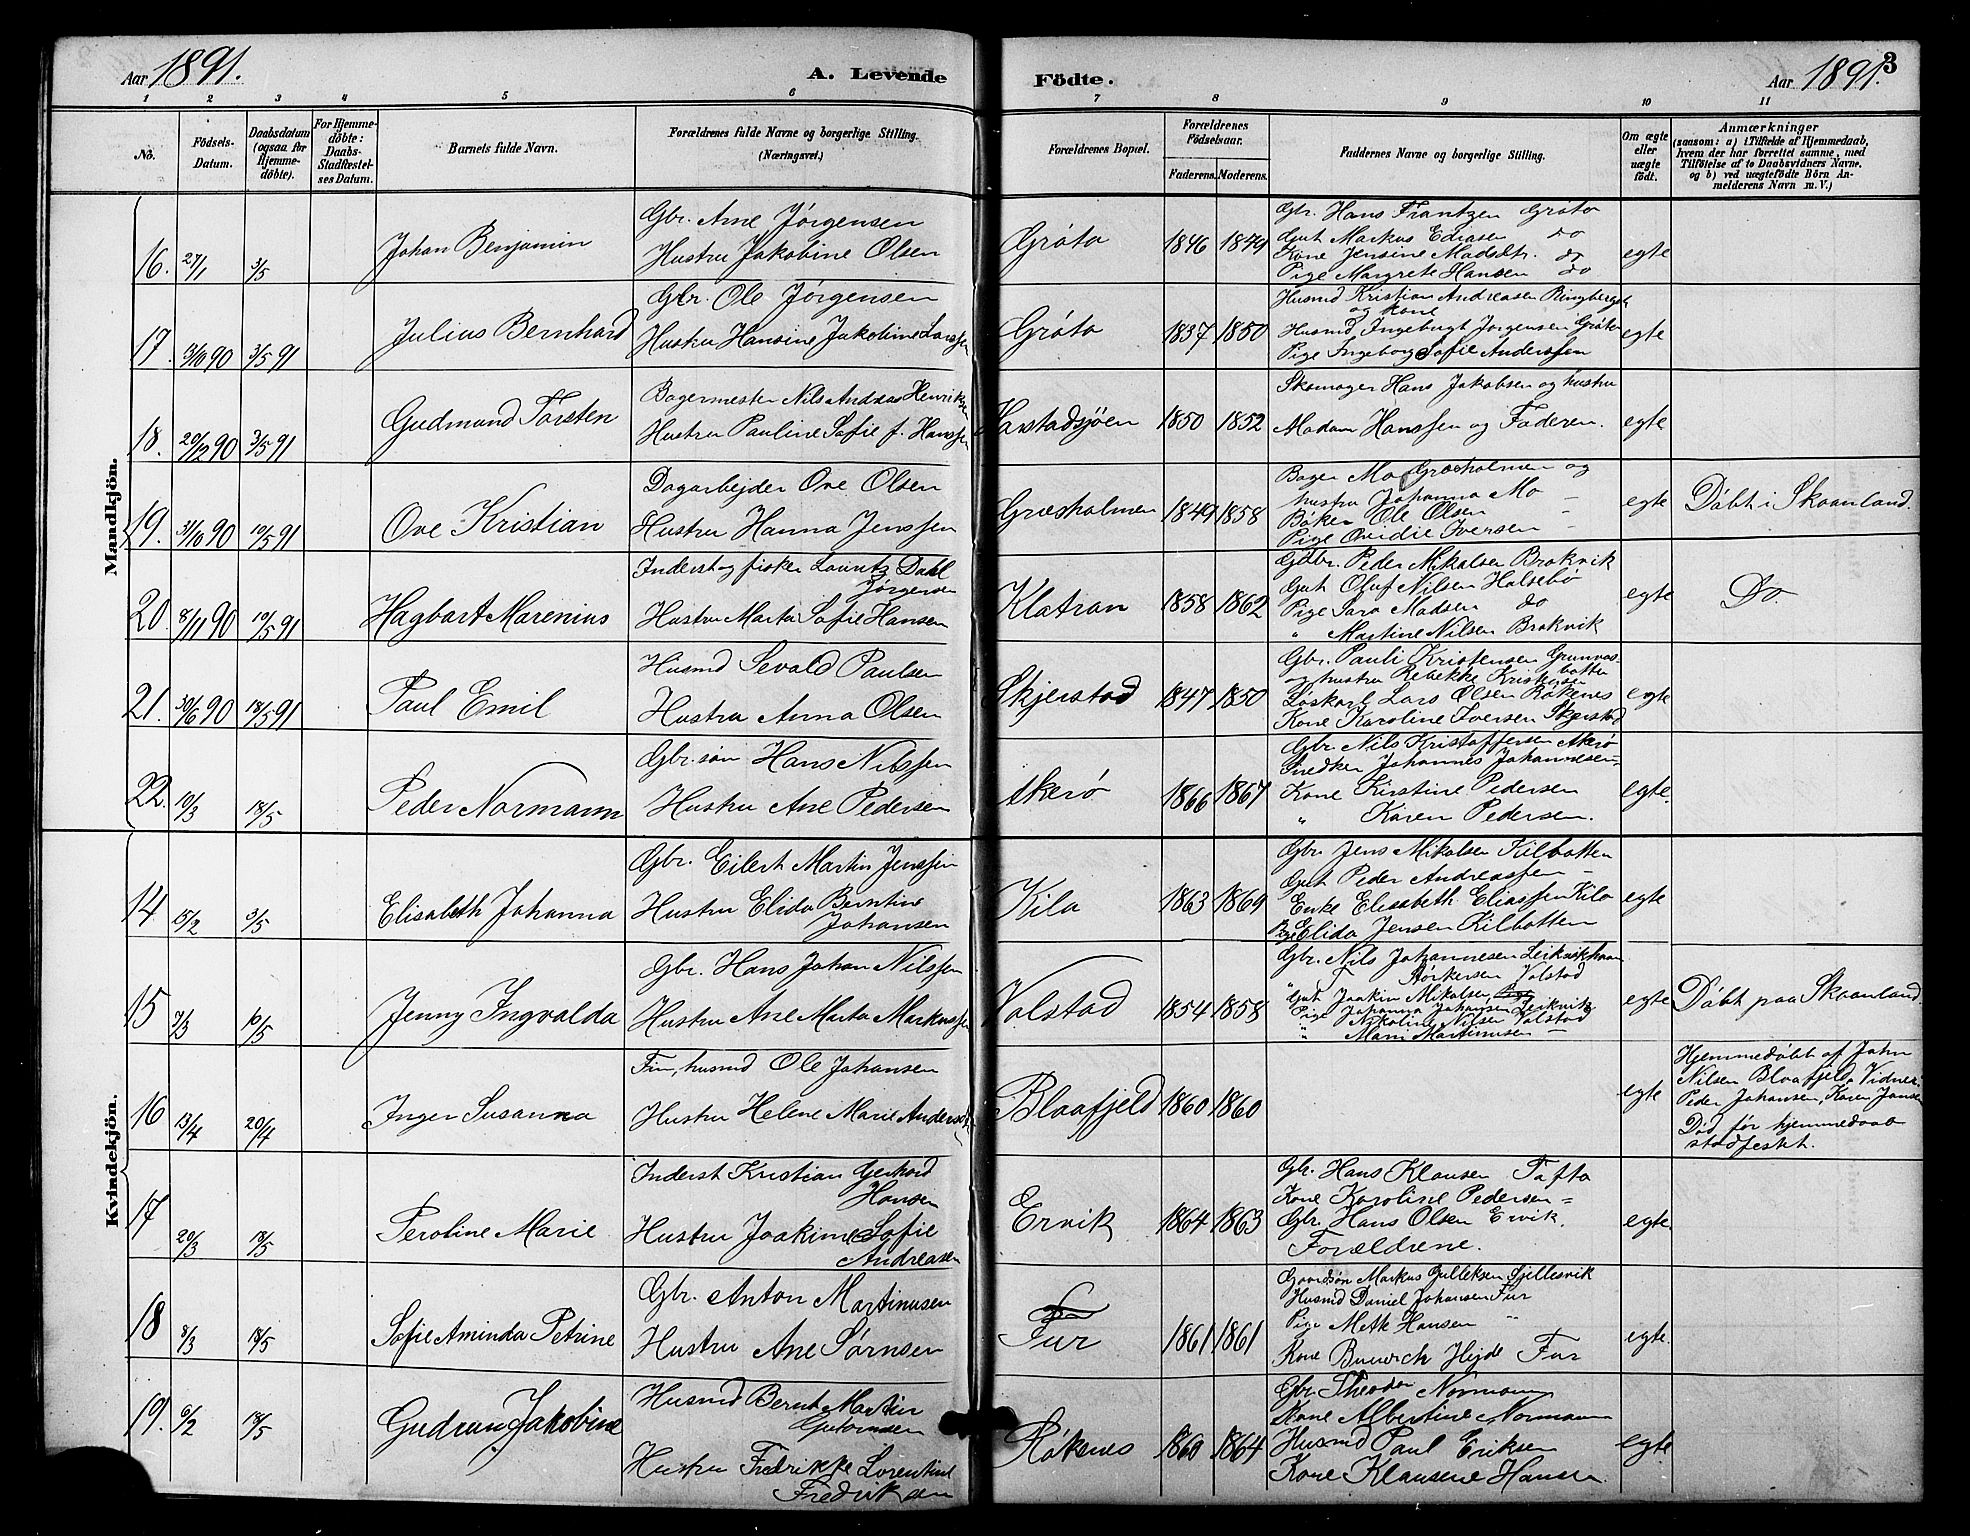 Aar 1891. A. Levende Födte. Aar 1891. 3
1 2 3 4 5 6 7 8 9 10 11
No. Födsels-Datum. Daabsdatum (ogsaa for Hjemmedöbte). For Hjemmedöbte: Daabs-Stadfæstelses Datum. Barnets fulde Navn. Forældrenes fulde Navne og borgerlige Stilling. (Næringsvei.) Forældrenes Bopæl. Forældrenes Födselsaar. Faderens. Moderens. Faddernes Navne og borgerlige Stilling. Om ægte eller uægte födt. Anmærkninger (saasom: a) i Tilfælde af Hjemmedaab, hvem der har forrettet samme, med Tilföielse af to Daabsvidners Navne. og b) ved uægtefödte Börn Anmelderens Navn m. V.)
Mandkjön.
16. 27/1 3/5 Johan Benjamin
Gbr. Arne Jørgensen
Hustru Jakobine Olsen
Grøtø 1846 1849
Gbr. Hans Frantzen Grøtø
Gut Markus Ediasen do
Kone Jensine Madsdtr. do
Pige Margrete Hansen do
egte
17. 3/10 90 3/5 91 Julius Bernhard
Gbr. Ole Jørgensen
Hustru Hansine Jakobine Larssen
Grøtø 1837 1850
Husmd Kristian Andreasen Ringberget
og kone
Husmd Ingebrigt Jørgensen Grøtø
Pige Ingeborg Sofie Anderssen
egte
18. 20/12 90 3/5 91 Gudmund Torsten
Bagermester Nils Andreas Henriksen
Hustru Pauline Sofie f. Hanssen
Harstadsjøen 1850 1852
Skomager Hans Jakobsen og hustru
Madam Hanssen og Faderen.
egte
19. 31/10 90 10/5 91 Ove Kristian
Dagarbejder Ove Olsen
Hustru Hanna Jenssen
Græsholmen 1849 1858
Bager Mo Græsholmen og
hustru Johanna Mo –
Bøker Ole Olsen –
Pige Ovidie Iversen –
egte Døbt i Skaanland.
20. 8/11 90 10/5 91 Hagbart Marenius
Inderst og fisker Lauritz Dahl
Jørgensen
Hustru Marta Sofie Hansen
Klatran 1858 1862
Gdbr. Peder Mikalsen Brokvik
Gut Oluf Nilsen Halsebø
Pige Sara Madsen do
" Martine Nilsen Brokvik
egte Do.
21. 30/6 90 18/5 91 Paul Emil
Husmd Sevald Paulsen
Hustru Anna Olsen
Skjerstad 1847 1850
Gbr. Pauli Kristensen Grunnvas-
botten
og hustru Rebekke Kristensen
Løskarl Lars Olsen Røkenes
Kone Karoline Iversen Skjerstad
egte
22. 10/3 18/5 Peder Normann
Gbr. søn Hans Nilssen
Hustru Ane Pedersen
Akerø 1866 1867
Gbr. Nils Kristoffersen Akerø
Snedker Johannes Johannesen –
Kone Kirstine Pedersen
" Karen Pedersen.
egte.
Kvindekjön.
14 15/2 3/5 Elisabeth Johanna
Gbr. Eilert Martin Jenssen
Hustru Elida Berntine
Johansen
Kila 1863 1869
Gbr. Jens Mikalsen Kilbotten
Gut Peder Andreassen –
Enke Elisabeth Eliassen Kila
Pige Elida Jensen Kilbotten
egte
15 7/3 10/5 Jenny Ingvalda
Gbr. Hans Johan Nilssen
Hustru Ane Marta Markussen
Volstad 1854 1858
Gbr. Nils Johannesen
Størkersen Volstad
" Gut Joakim Mikalsen,
Pige Johanna Johansen Leikvik
" Nikoline Nilsen Volstad
" Marri Martinusen –
egte Døbt paa Skaanland.
16 13/4 20/4 Inger Susanna
Fin, husmd Ole Johansen
Hustru Helene Marie Andersdtr
Blaafjeld 1860 1860
egte
Hjemmedøbt af John
Nilsen Blaafjeld. Vidner:
Peder Johansen, Karen Jansen
Død før hjemmedaab
stadfestet.
17 20/3 18/5 Peroline Marie
Inderst Kristian Gerhard
Hansen
Hustru Joakime Sofie
Andreasen
Ervik 1864 1863
Gbr. Hans Klausen Tofta
Kone Karoline Pedersen =
Gbr. Hans Olsen Ervik.
Forældrene.
egte
18 8/3 18/5 Sofie Aminda Petrine
Gbr. Anton Martinusen
Hustru Ane Sørnsen
Fur 1861 1861
Gaardsøn Markus Gulleksen
Husmd Daniel Johansen Fur
Pige Mette Hansen "
Kone Hejde Fur
egte.
19. 6/2 18/5 Gudrun Jakobine
Husmd Bernt Martin
Gutormsen
Hustru Fredrikke Lorentine
Fredriksen
Røkenes 1860 1864
Gbr. Theodor Normann
Kone Albertine Normann
Husmd Paul Eriksen
Kone Klausene Hansen.
egte